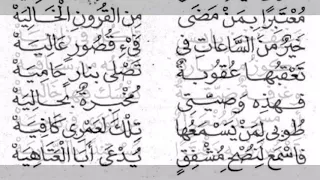 مُعْتَبِرًا بِمَنْ مَضَى مِنَ الْقُرُونِ الْخَالِيَهْ
خَيْرٌ مِنَ السَّاعَاتِ فِي فَيْءِ قُصُورٍ عَالِيَهْ
تَعْقُبُهَا عُقُوبَةٌ تَصْلَى بِنَارٍ حَامِيَهْ
فَهٰذِهِ وَصِيَّتِي مُخْبِرَةٌ بِحَالِيَهْ
طُوبَى لِمَنْ يَسْمَعُهَا تِلْكَ لَعَمْرِي كَافِيَهْ
فَاسْمَعْ لِنُصْحِ مُشْفِقٍ يُدْعَى أَبَا الْعَتَاهِيَهْ